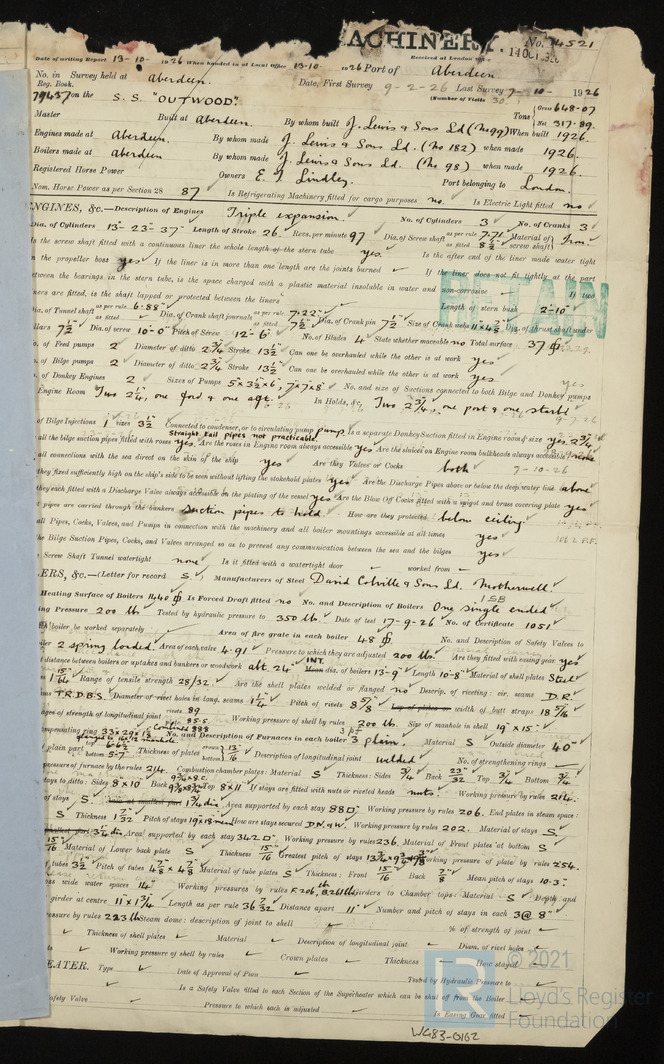 MACHINERY. No. 4521
Date of writing Report 13-10-1926 When handed in at Local Office 13-10-1926 Port of Aberdeen
Received at London Office 14 OCT 1926
No. in Survey held at Aberdeen. Date, First Survey 9-2-26 Last Survey 7-10-1926
Reg. Book. (Number of Visits 30)
79437 on the S.S. "OUTWOOD". Tons Gross 648.07 Net 317.89
Master Built at Aberdeen. By whom built J. Lewis & Sons Ld (No 99) When built 1926.
Engines made at Aberdeen. By whom made J. Lewis & Sons Ld. (No 182) when made 1926.
Boilers made at Aberdeen By whom made J. Lewis & Sons Ld. (No 98) when made 1926.
Registered Horse Power Owners E. T. Lindley. Port belonging to London.
Nom. Horse Power as per Section 28 87 Is Refrigerating Machinery fitted for cargo purposes no. Is Electric Light fitted no
ENGINES, &c.—Description of Engines Triple expansion. No. of Cylinders 3 No. of Cranks 3
Dia. of Cylinders 13-23-37 Length of Stroke 26. Revs. per minute 97 Dia. of Screw shaft as per rule 7.71 as fitted 8½ Material of screw shaft Iron
Is the screw shaft fitted with a continuous liner the whole length of the stern tube yes. Is the after end of the liner made water tight
in the propeller boss yes If the liner is in more than one length are the joints burned If the liner does not fit tightly at the part
between the bearings in the stern tube, is the space charged with a plastic material insoluble in water and non-corrosive If two
liners are fitted, is the shaft lapped or protected between the liners Length of stern bush 2-10
RETAIN
Dia. of Tunnel shaft as per rule 6.88 as fitted Dia. of Crank shaft journals as per rule 7.22 as fitted 7½ Dia. of Crank pin 7½ Size of Crank webs 11 x 4⅞ Dia. of thrust shaft under
collars 7½ Dia. of screw 10-0 Pitch of Screw 12-6 No. of Blades 4 State whether moveable no Total surface 37
No. of Feed pumps 2 Diameter of ditto 2¾ Stroke 13½ Can one be overhauled while the other is at work yes
No. of Bilge pumps 2 Diameter of ditto 2¾ Stroke 13½ Can one be overhauled while the other is at work yes
No. of Donkey Engines 2 Sizes of Pumps 5x3½x6, 7x7x8 No. and size of Suctions connected to both Bilge and Donkey pumps
Engine Room Two 2¼, one ford & one aft. In Holds, &c. Two 2¾, one port & one starbd
No. of Bilge Injections 1 sizes 3½ Connected to condenser, or to circulating pump pump Is a separate Donkey Suction fitted in Engine room & size yes 2¾
Straight tail pipes not practicable.
all the bilge suction pipes fitted with roses yes. Are the roses in Engine room always accessible yes Are the sluices on Engine room bulkheads always accessible none
all connections with the sea direct on the skin of the ship yes Are they Valves or Cocks both 7-10-26
they fixed sufficiently high on the ship's side to be seen without lifting the stokehold plates yes Are the Discharge Pipes above or below the deep water line above
they each fitted with a Discharge Valve always accessible on the plating of the vessel yes Are the Blow Off Cocks fitted with a spigot and brass covering plate yes
pipes are carried through the bunkers Suction pipes to hold. How are they protected below ceiling.
all Pipes, Cocks, Valves, and Pumps in connection with the machinery and all boiler mountings accessible at all times yes
the Bilge Suction Pipes, Cocks, and Valves arranged so as to prevent any communication between the sea and the bilges yes
Screw Shaft Tunnel watertight none Is it fitted with a watertight door worked from
BOILERS, &c.—(Letter for record S) Manufacturers of Steel David Colville & Sons Ld. Motherwell.
Heating Surface of Boilers 1440 Is Forced Draft fitted no No. and Description of Boilers One single ended 1SB
Working Pressure 200 lb Tested by hydraulic pressure to 350 lb. Date of test 17-9-26 No. of Certificate 1051
be worked separately Area of fire grate in each boiler 48 No. and Description of Safety Valves to
boiler 2 spring loaded. Area of each valve 4.91 Pressure to which they are adjusted 200 lbs. Are they fitted with easing gear yes
distance between boilers or uptakes and bunkers or woodwork abt. 24 INT. dia. of boilers 13-9 Length 10-8 Material of shell plates Steel
Range of tensile strength 28/32 Are the shell plates welded or flanged no Descrip. of riveting: cir. seams D.R.
T.R.D.B.S. Diameter of rivet holes in long. seams 1¼ Pitch of rivets 8⅝ width of butt straps 18 5/16
percentages of strength of longitudinal joint rivets 89 85.5 Combined 88.8 Working pressure of shell by rules 200 lb. Size of manhole in shell 19 x 15.
No. and Description of Furnaces in each boiler 3 plain. Material S Outside diameter 40
plain part Thickness of plates 13/16 Description of longitudinal joint welded No. of strengthening rings
pressure of furnace by the rules 214. Combustion chamber plates: Material S Thickness: Sides ¾ Back 23/32 Top ¾ Bottom ¾
stays to ditto: Sides 8 x 10 Top 8 x 11 If stays are fitted with nuts or riveted heads nuts. Working pressure by rules 214.
of stays S. Area supported by each stay 88 Working pressure by rules 206. End plates in steam space:
S Thickness 1 7/32 Pitch of stays How are stays secured D.N.&W. Working pressure by rules 202. Material of stays S
Area supported by each stay 342 Working pressure by rules 236. Material of Front plates at bottom S
15/16 Material of Lower back plate S Thickness 15/16 Greatest pitch of stays Working pressure of plate by rules 254.
of tubes 3½ Pitch of tubes 4⅞ x 4⅞ Material of tube plates S Thickness: Front 15/16 Back ⅞ Mean pitch of stays 10.3
wide water spaces 14 Working pressures by rules F.206, B.261 lb Girders to Chamber tops: Material S Depth and
girder at centre 11 x 1¾ Length as per rule 36 7/32 Distance apart 11 Number and pitch of stays in each 3 @ 8
pressure by rules 223 lb Steam dome: description of joint to shell % of strength of joint
Thickness of shell plates Material Description of longitudinal joint Diam. of rivet holes
Working pressure of shell by rules Crown plates Thickness How stayed
SUPERHEATER. Type Date of Approval of Plan Tested by Hydraulic Pressure to
Is a Safety Valve fitted to each Section of the Superheater which can be shut off from the Boiler
Safety Valve Pressure to which each is adjusted Is Easing Gear fitted
© 2021
Lloyd's Register
Foundation
W683-0162